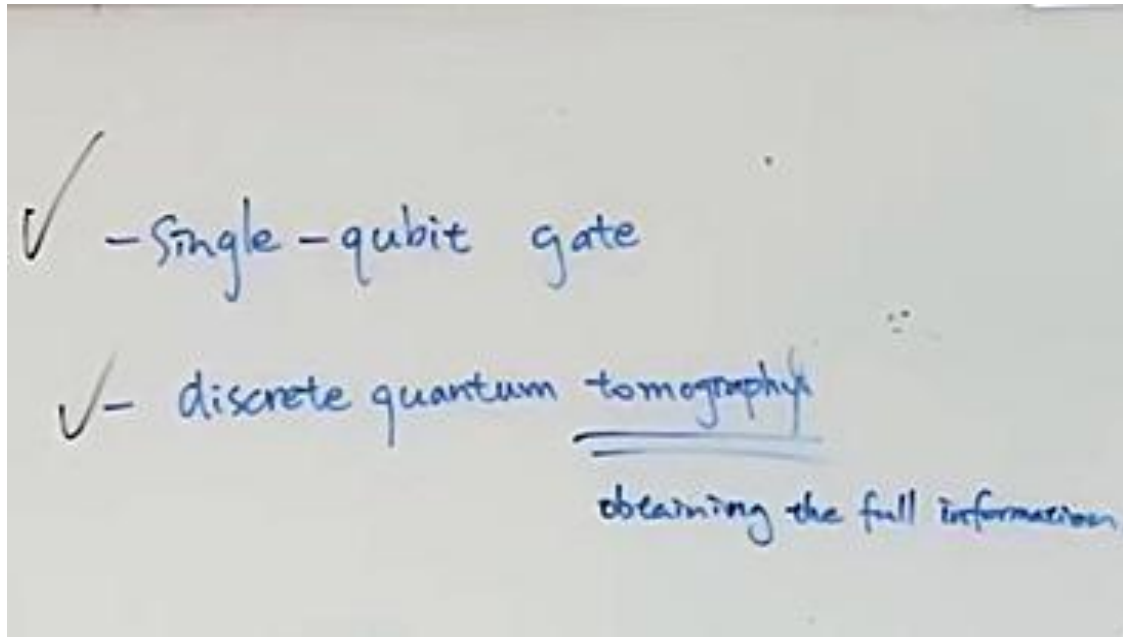 ✓ - single-qubit gate
✓ - discrete quantum tomography
obtaining the full information